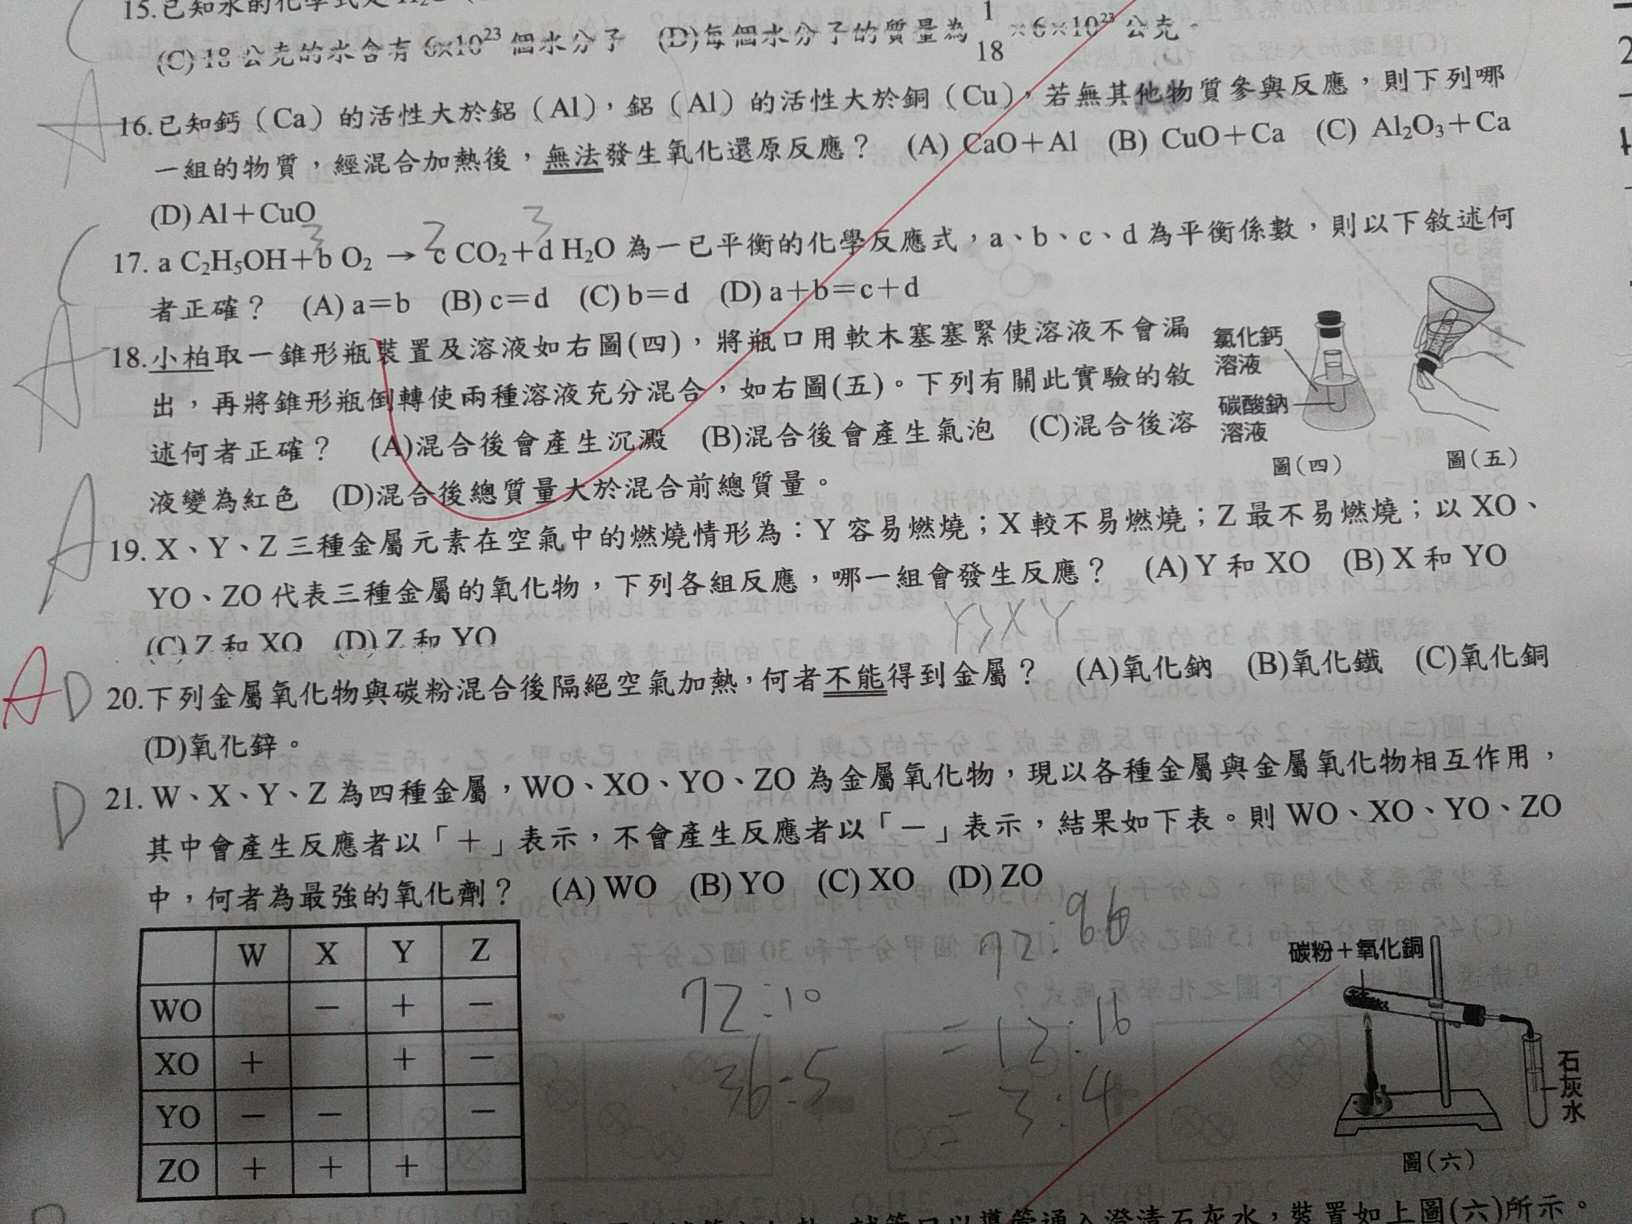 15.已知水的化學式是 H₂O
(C) 18 公克的水含有 6×10²³ 個水分子 (D)每個水分子的質量為 1/18 ×6×10²³ 公克。
A
16.已知鈣（Ca）的活性大於鋁（Al），鋁（Al）的活性大於銅（Cu），若無其他物質參與反應，則下列哪
一組的物質，經混合加熱後，無法發生氧化還原反應？ (A) CaO＋Al (B) CuO＋Ca (C) Al₂O₃＋Ca
(D) Al＋CuO
3 2 3
C
17. a C₂H₅OH＋b O₂ → c CO₂＋d H₂O 為一已平衡的化學反應式，a、b、c、d 為平衡係數，則以下敘述何
者正確？ (A) a＝b (B) c＝d (C) b＝d (D) a＋b＝c＋d
A
18.小柏取一錐形瓶裝置及溶液如右圖(四)，將瓶口用軟木塞塞緊使溶液不會漏
出，再將錐形瓶倒轉使兩種溶液充分混合，如右圖(五)。下列有關此實驗的敘
述何者正確？ (A)混合後會產生沉澱 (B)混合後會產生氣泡 (C)混合後溶
液變為紅色 (D)混合後總質量大於混合前總質量。
氯化鈣
溶液
碳酸鈉
溶液
圖(四) 圖(五)
A
19. X、Y、Z 三種金屬元素在空氣中的燃燒情形為：Y 容易燃燒；X 較不易燃燒；Z 最不易燃燒；以 XO、
YO、ZO 代表三種金屬的氧化物，下列各組反應，哪一組會發生反應？ (A) Y 和 XO (B) X 和 YO
(C) Z 和 XO (D) Z 和 YO
A D
20.下列金屬氧化物與碳粉混合後隔絕空氣加熱，何者不能得到金屬？ (A)氧化鈉 (B)氧化鐵 (C)氧化銅
(D)氧化鋅。
D
21. W、X、Y、Z 為四種金屬，WO、XO、YO、ZO 為金屬氧化物，現以各種金屬與金屬氧化物相互作用，
其中會產生反應者以「＋」表示，不會產生反應者以「－」表示，結果如下表。則 WO、XO、YO、ZO
中，何者為最強的氧化劑？ (A) WO (B) YO (C) XO (D) ZO
W X Y Z
WO － ＋ －
XO ＋ ＋ －
YO － － －
ZO ＋ ＋ ＋
72:10
36:5
72:96
=12:16
=3:4
碳粉＋氧化銅
石灰水
圖(六)
以導管通入澄清石灰水，裝置如上圖(六)所示。